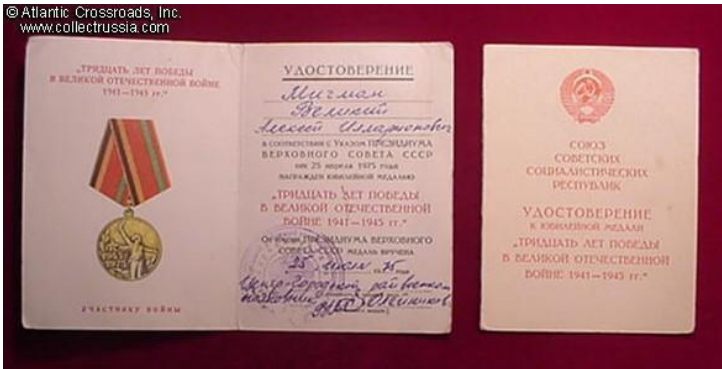 © Atlantic Crossroads, Inc.
www.collectrussia.com
„ТРИДЦАТЬ ЛЕТ ПОБЕДЫ
В ВЕЛИКОЙ ОТЕЧЕСТВЕННОЙ ВОЙНЕ
1941—1945 гг."
УЧАСТНИКУ ВОЙНЫ
УДОСТОВЕРЕНИЕ
Мичман
Великий
Алексей Илларионович
В СООТВЕТСТВИИ С УКАЗОМ ПРЕЗИДИУМА
ВЕРХОВНОГО СОВЕТА СССР
от 25 апреля 1975 года
НАГРАЖДЕН ЮБИЛЕЙНОЙ МЕДАЛЬЮ
„ТРИДЦАТЬ ЛЕТ ПОБЕДЫ
В ВЕЛИКОЙ ОТЕЧЕСТВЕННОЙ
ВОЙНЕ 1941—1945 гг."
От имени ПРЕЗИДИУМА ВЕРХОВНОГО
СОВЕТА СССР МЕДАЛЬ ВРУЧЕНА
25 75 года
райвоенком
полковник
СОЮЗ
СОВЕТСКИХ
СОЦИАЛИСТИЧЕСКИХ
РЕСПУБЛИК
УДОСТОВЕРЕНИЕ
К ЮБИЛЕЙНОЙ МЕДАЛИ
„ТРИДЦАТЬ ЛЕТ ПОБЕДЫ
В ВЕЛИКОЙ ОТЕЧЕСТВЕННОЙ
ВОЙНЕ 1941—1945 гг."